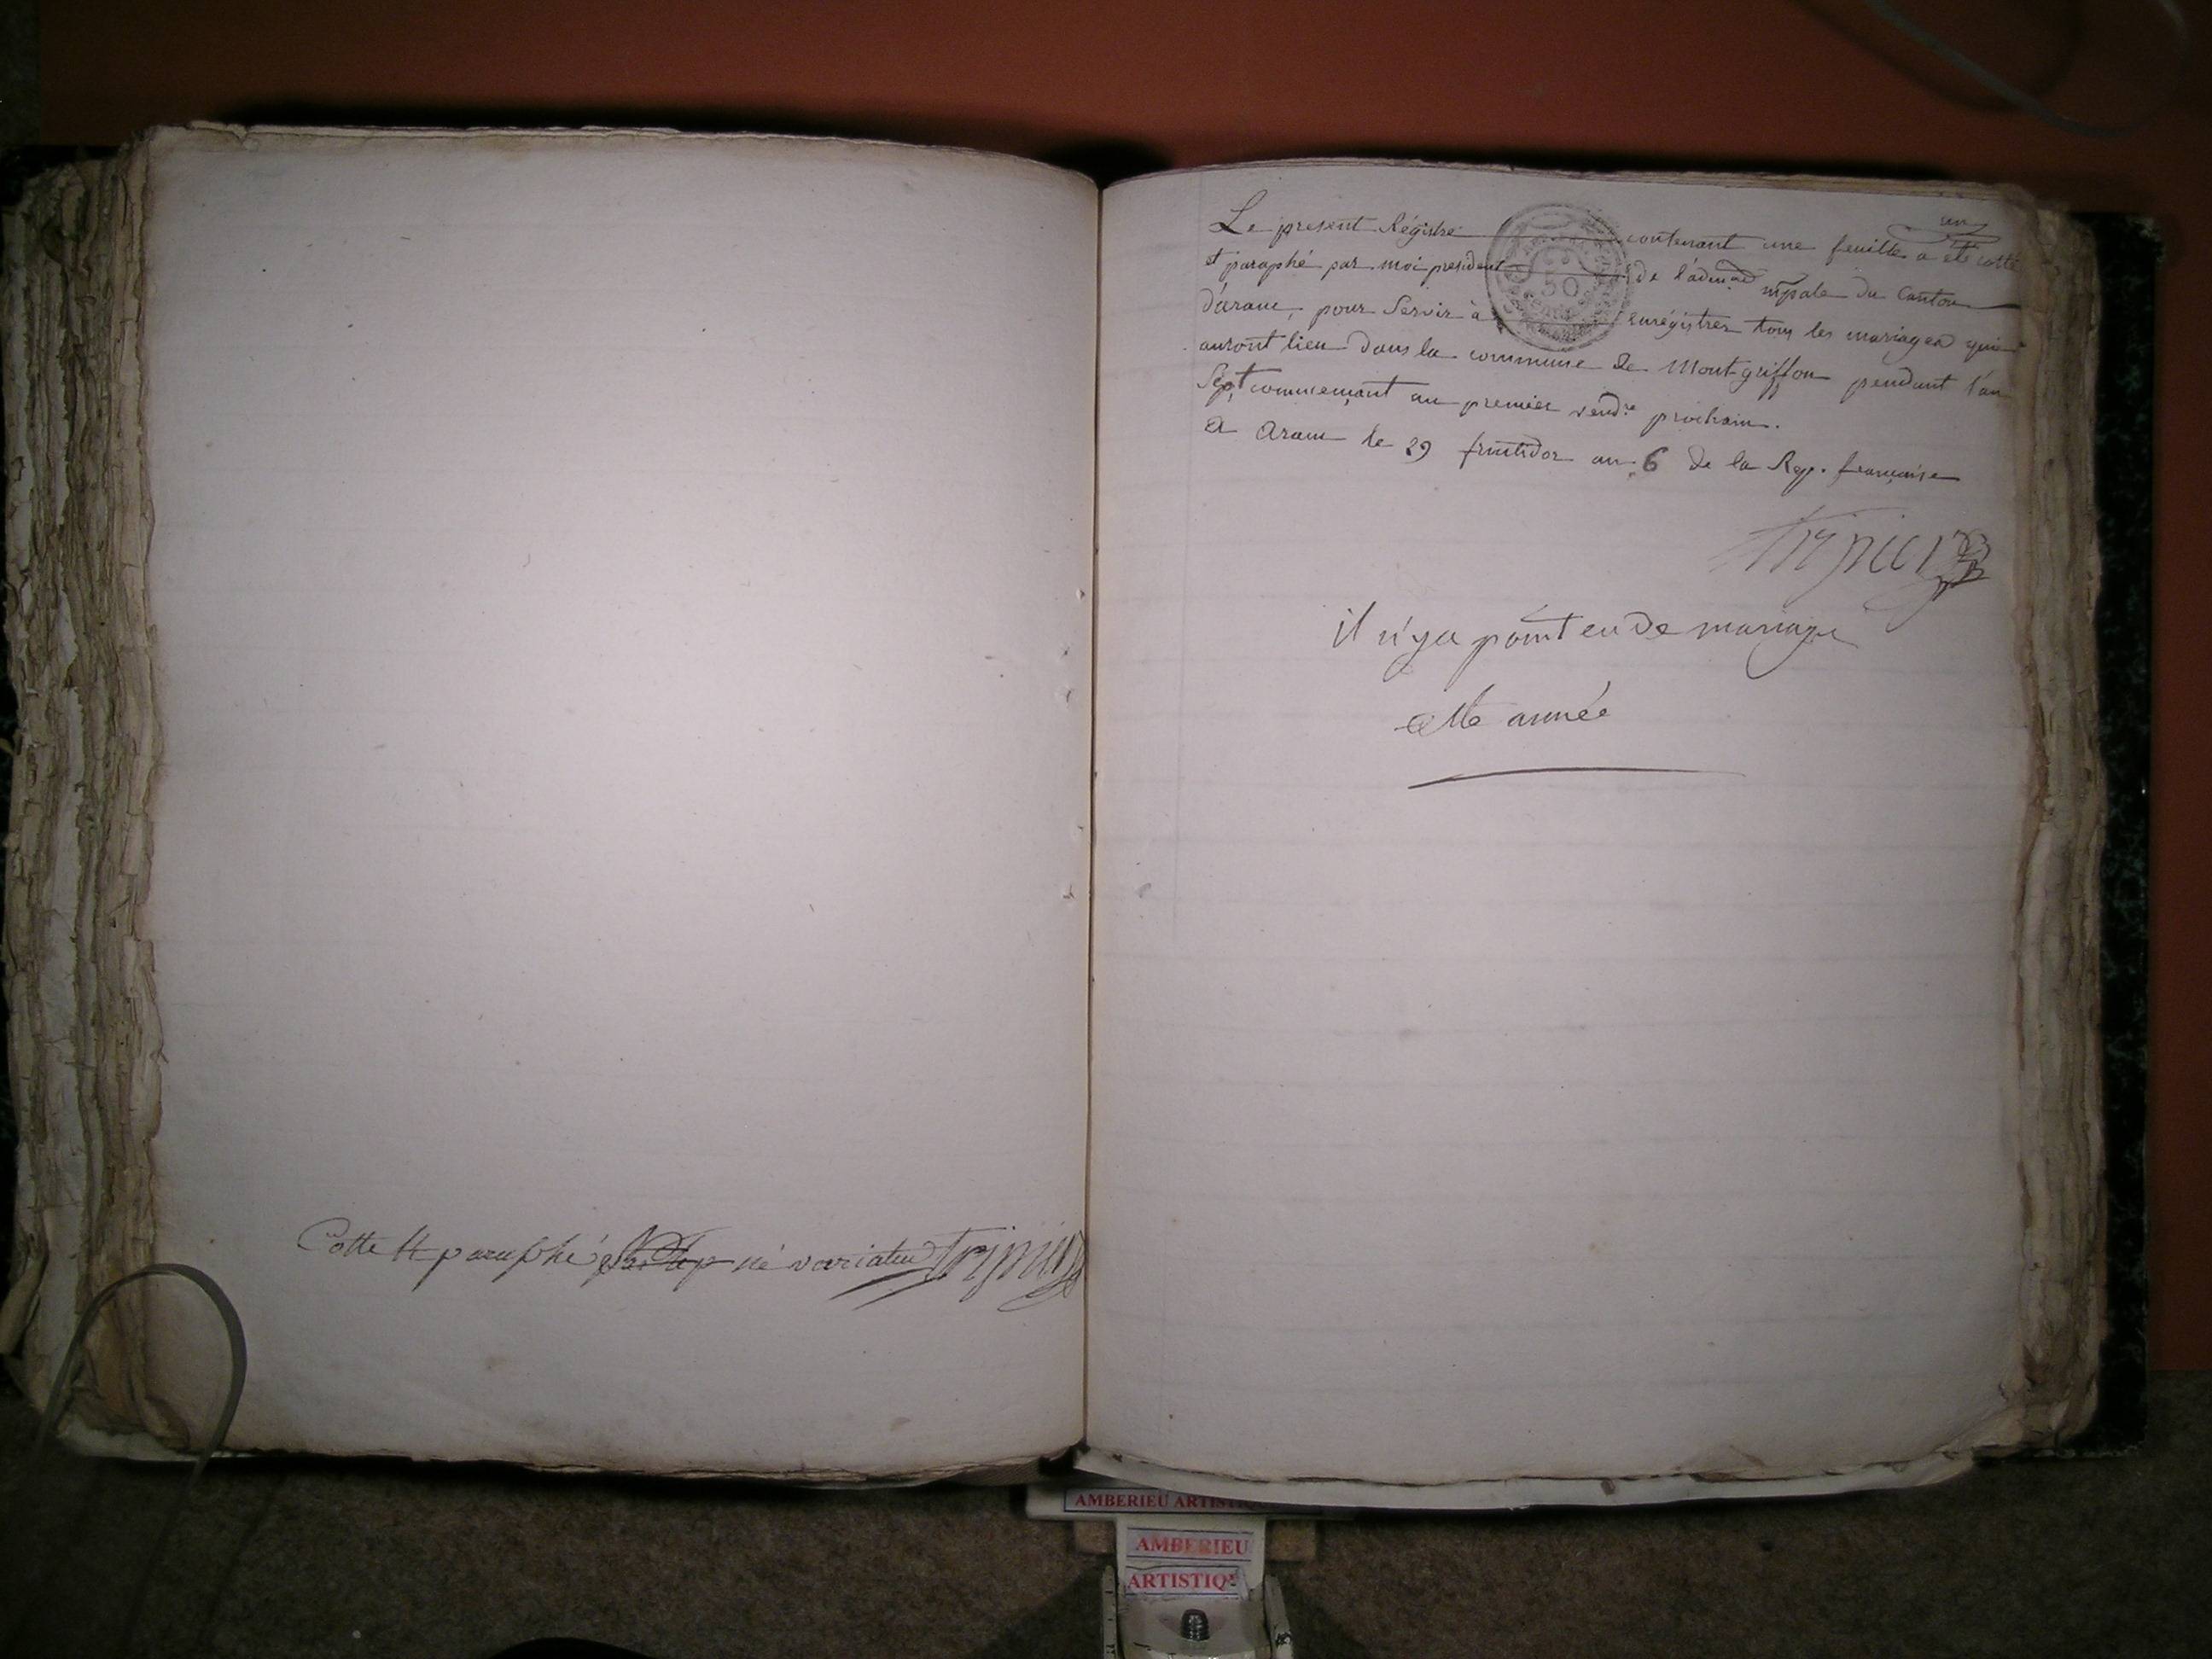 Cotte et paraphé né variatur
un
Le présent Régistre contenant une feuille a été cotté
et paraphé par moi président de l'admon mpale du Canton
d'arane, pour Servir à enrégistrer tous les mariages qui
auront lieu dans la commune de Montgriffon pendant l'an
Sept, commençant au premier vendre prochain.
A Arane le 29 fructidor an 6 de la Rep. française
50
il n'ya point eu de mariage
cette année
AMBERIEU ARTISTIQ
AMBERIEU
ARTISTIQ